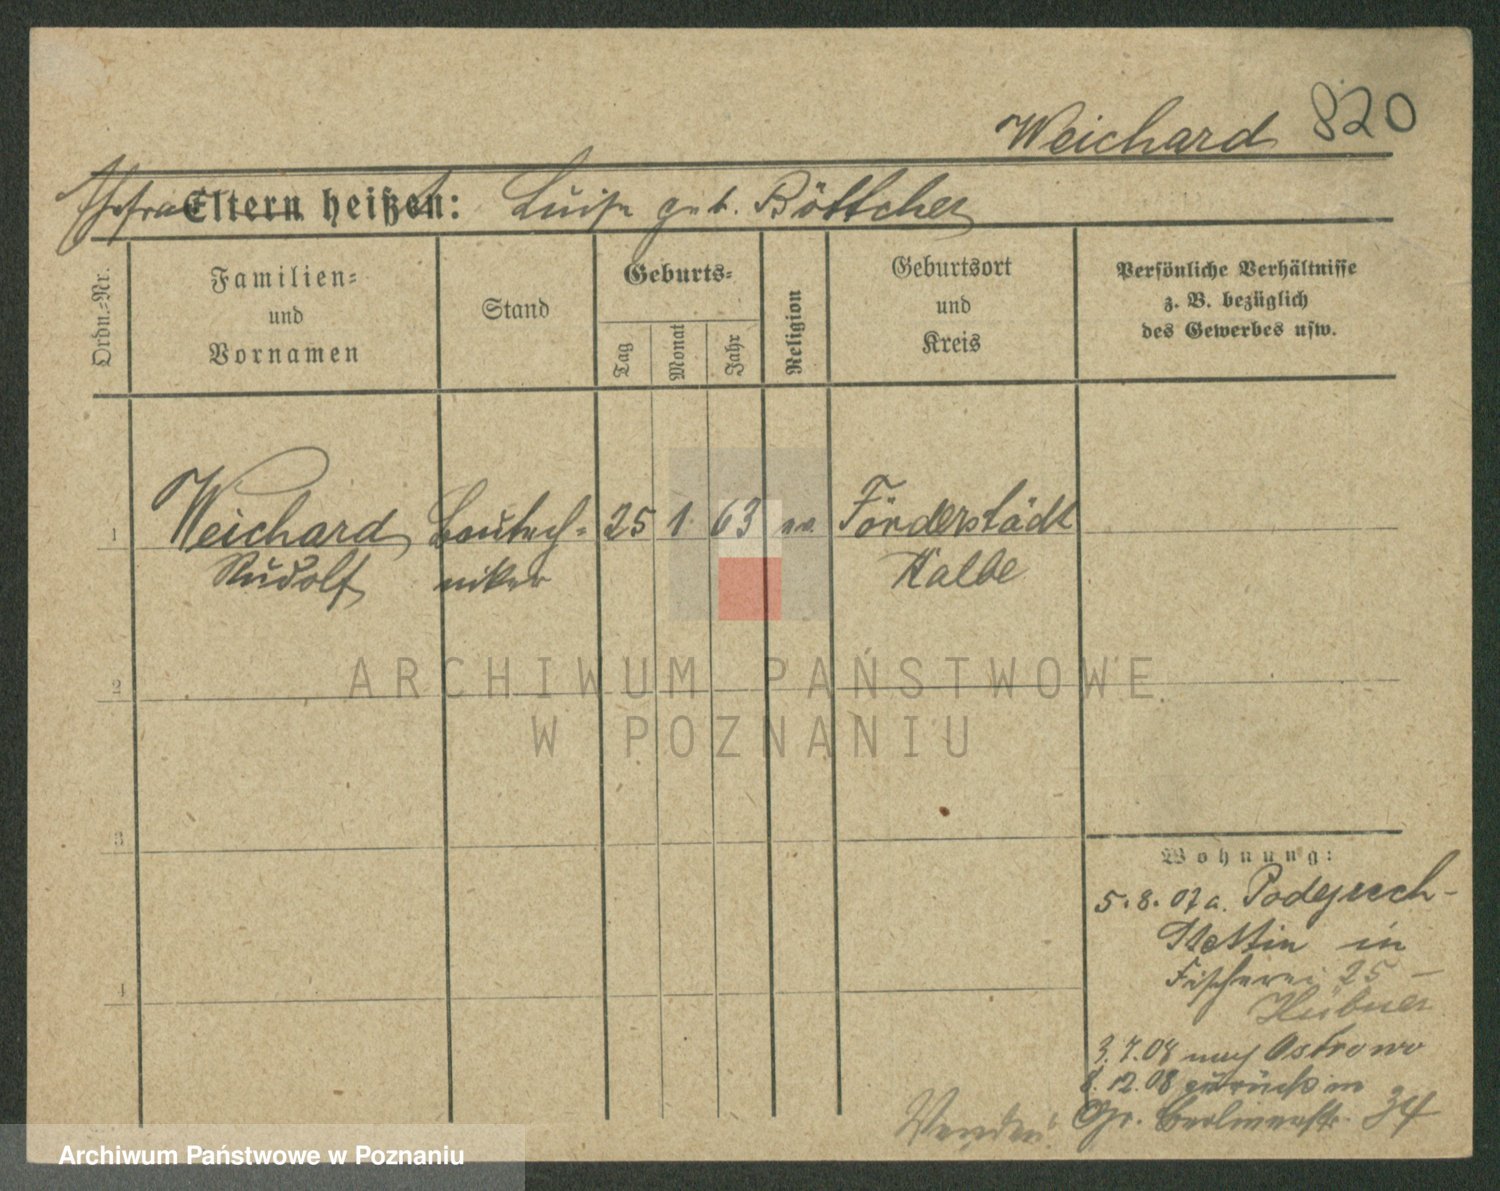 Weichard 820
Ehefrau Eltern heißen: Luise geb. Böttcher
Ordn.-Nr.
Familien-
und
Vornamen
Stand
Geburts-
Tag
Monat
Jahr
Religion
Geburtsort
und
Kreis
Persönliche Verhältnisse
z. B. bezüglich
des Gewerbes usw.
1 Weichard Bautech- 25 1. 63 ev. Förderstädt
Rudolf niker Kalbe
2
ARCHIWUM PAŃSTWOWE
W POZNANIU
3
Wohnung:
5.8.07 a. Podejuch-
Stettin in
Fischerei 25 -
Hübner
4
3.7.08 nach Ostrowo
8.12.08 zurück in
Gr. Berlinerstr. 34
Wenden!
Archiwum Państwowe w Poznaniu